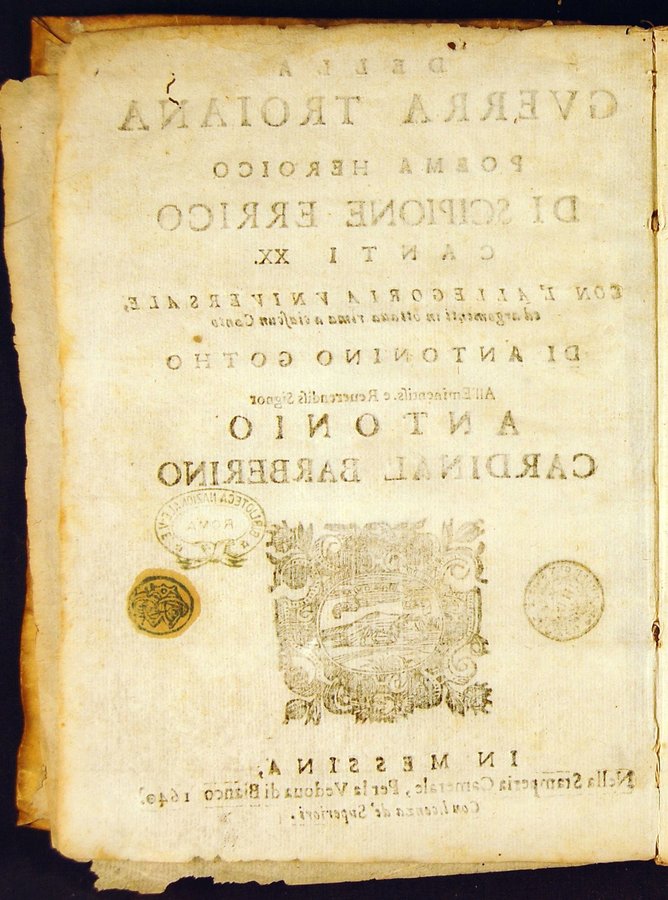 DELLA
GVERRA TROIANA
POEMA HEROICO
DI SCIPIONE ERRICO
CANTI XX.
CON L'ALLEGORIA VNIVERSALE,
ed argomenti in ottaua rima a ciascun Canto
DI ANTONINO GOTHO
All'Eminentiss. e Reuerendiss Signor
ANTONIO
CARDINAL BARBERINO
BIBLIOTECA NAZIONALE
ROMA
IN MESSINA,
Nella Stamperia Camerale, Per la Vedoua di Bianco 1640.
Con licenza de' Superiori.